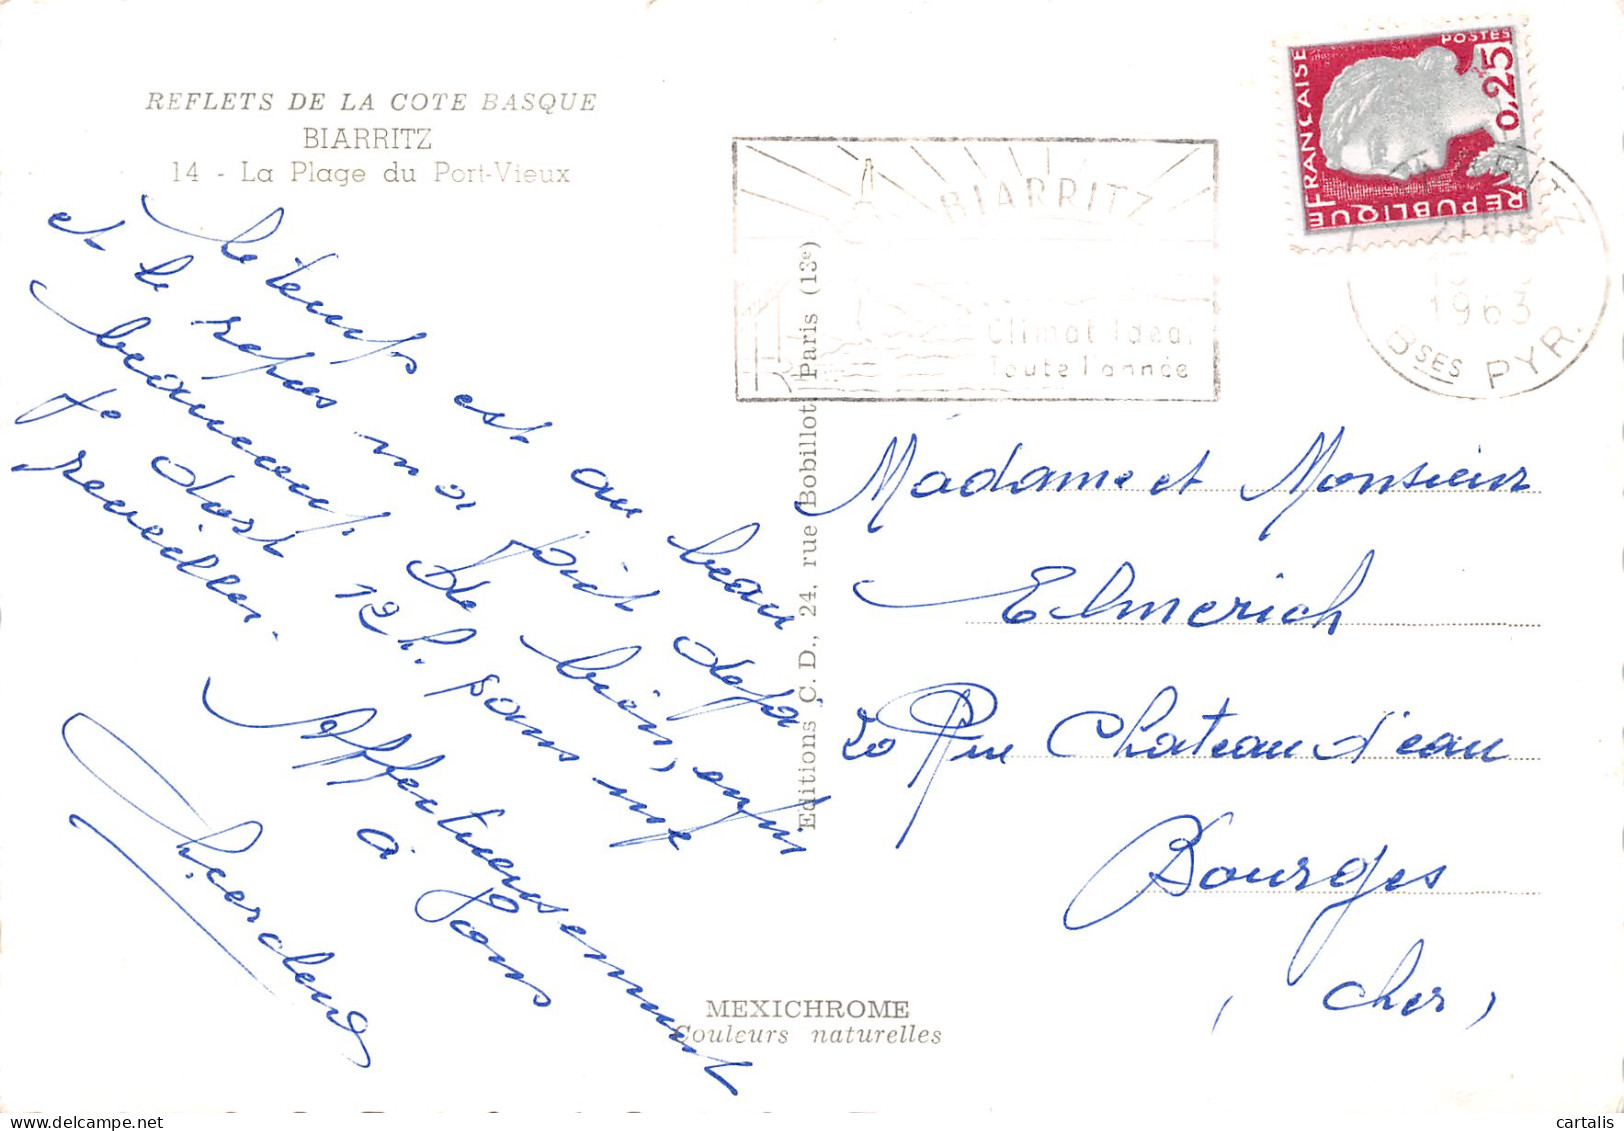 REFLETS DE LA COTE BASQUE
BIARRITZ
14 - La Plage du Port-Vieux
Le temps est au beau
et le repos m'a fait déjà
beaucoup de bien, enfin
je dort 12 h. sans me
reveiller.
Affectueusement
à Vous
Editions C. D., 24, rue Bobillot Paris (13e)
MEXICHROME
Couleurs naturelles
BIARRITZ
Climat Idéal
Toute l'année
POSTES
0,25
REPUBLIQUE FRANÇAISE
BIARRITZ
1963
Bses PYR.
Madame et Monsieur
Elmerich
20 Rue Chateau d'eau
Bourges
(Cher)
cartalis
delcampe.net